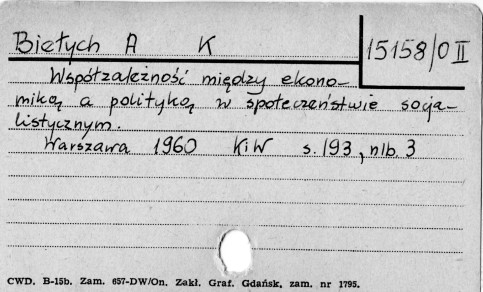 Biełych A K
15158/O II
Współzależność między ekono-
miką a polityką w społeczeństwie socja-
listycznym.
Warszawa 1960 KiW s. 193, nlb. 3
CWD. B-15b. Zam. 657-DW/On. Zakł. Graf. Gdańsk, zam. nr 1795.